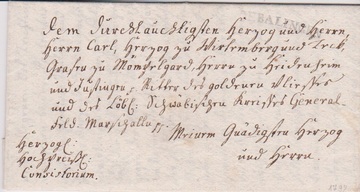 Dem Durchlauchtigsten Herzog und Herrn,
Herrn Carl, Herzog zu Wirtemberg und Teck,
Grafen zu Mömpelgard, Herrn zu Heidenheim
und Justingen, Ritter des goldenen Vliesses
und des Löbl: Schwäbischen Kreises General-
Feld-Marschallen
Meinem Gnädigsten Herzog
und Herrn.
Herzogl:
Hochpreißl:
Consistorium.
BALING